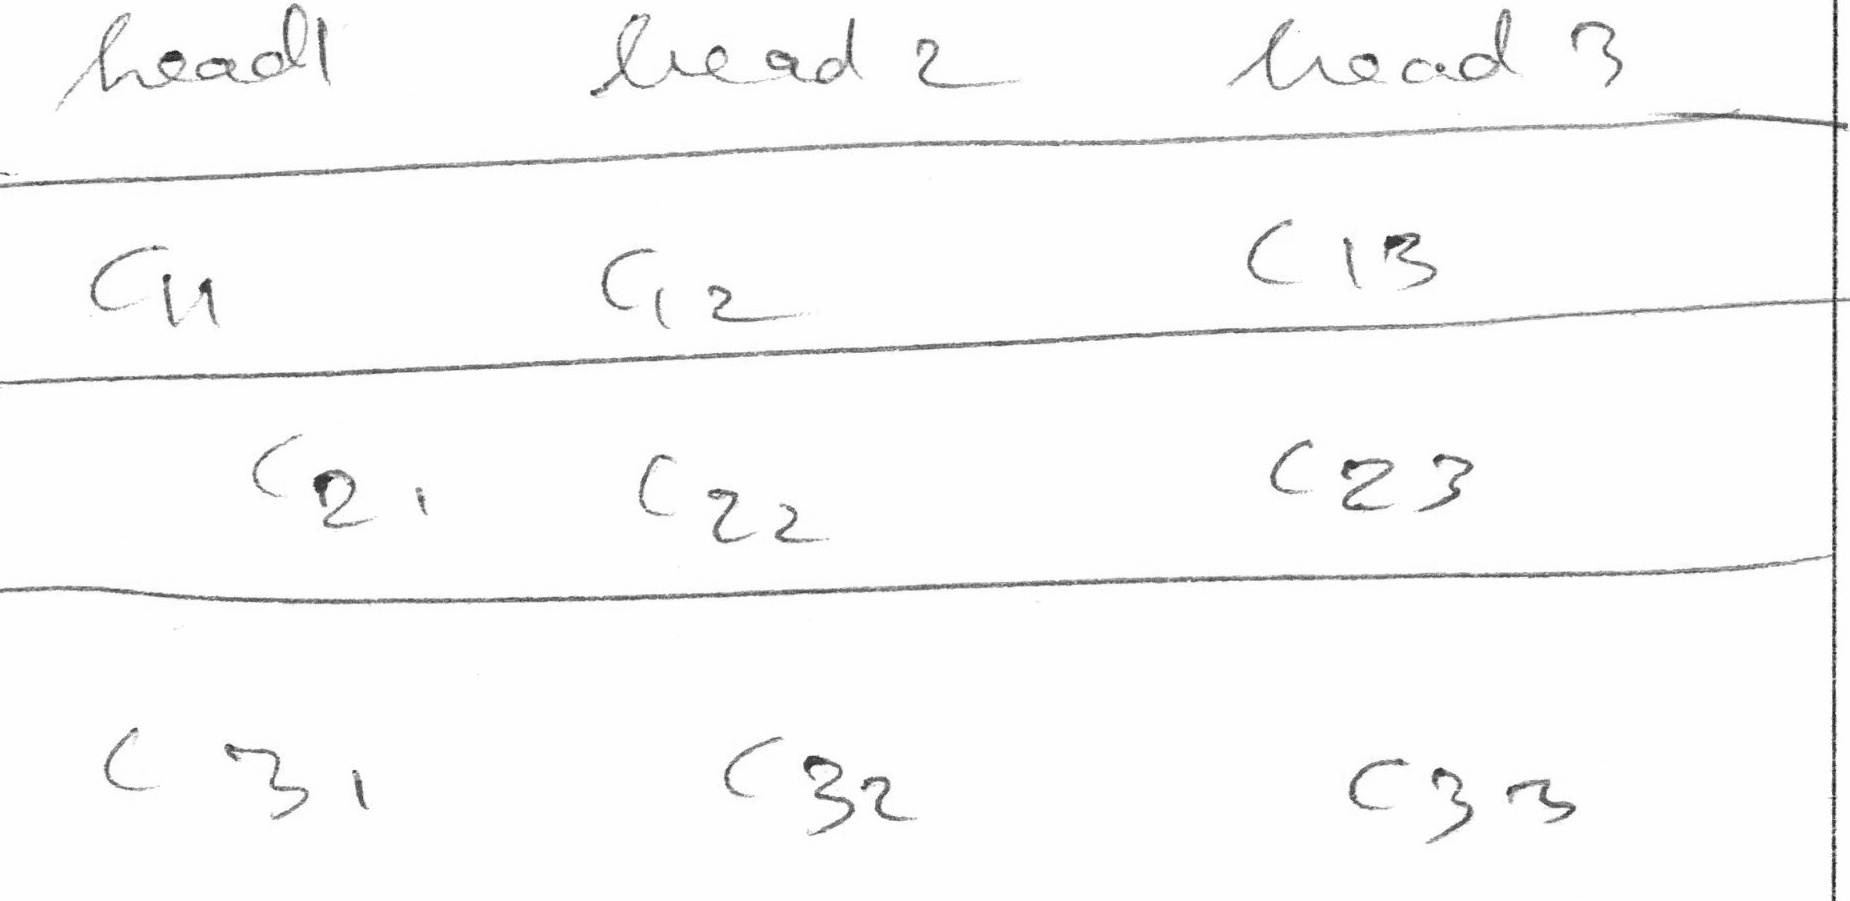 head1 head 2 head 3
C11 C12 C13
C21 C22 C23
C31 C32 C33